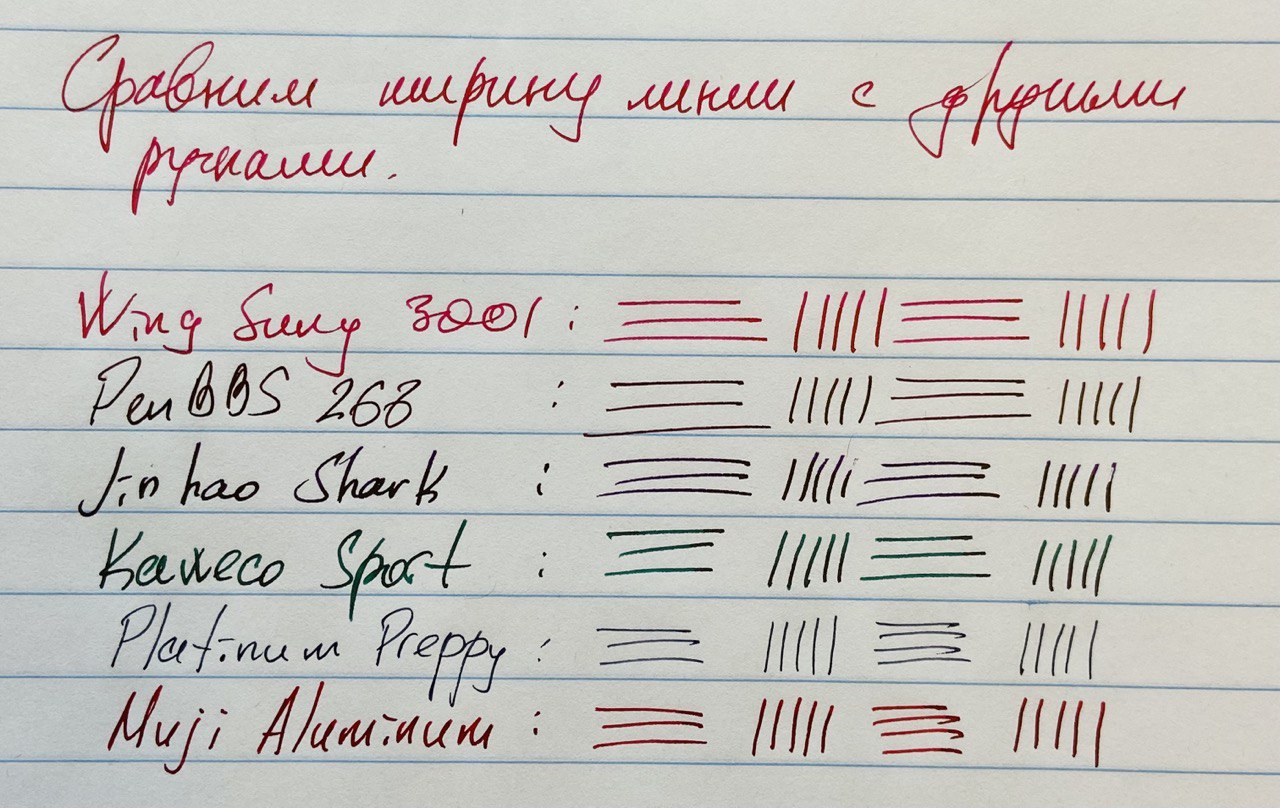 Сравним ширину линии с другими
ручками.
Wing Sung 3001 :
PenBBS 268 :
Jinhao Shark :
Kaweco Sport :
Platinum Preppy :
Muji Aluminum :